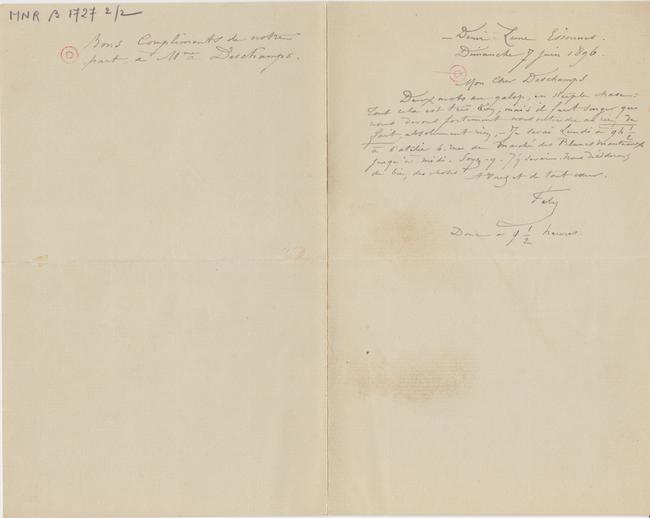 MNR β 1727 2/2
Bons Compliments de notre
part à Mme Deschamps.
- Demi-Lune Essonnes
Dimanche 7 juin 1896
Mon Cher Deschamps
Deux mots au galop, en steeple chase:
Tout cela est très bien, mais il faut songer que
nous devons fortement nous
fait, absolument rien, - Je serai Lundi à 9h 1/2
à l'atelier 6. rue du Marché des Blancs Manteaux
jusqu'à midi. Soyez-y. J'y serai. Nous
de bien des choses. A vous et de tout cœur.
Fély
Donc à 9 1/2 heures.